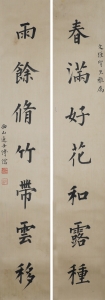 春滿好花和露種
雨餘脩竹帶雲移